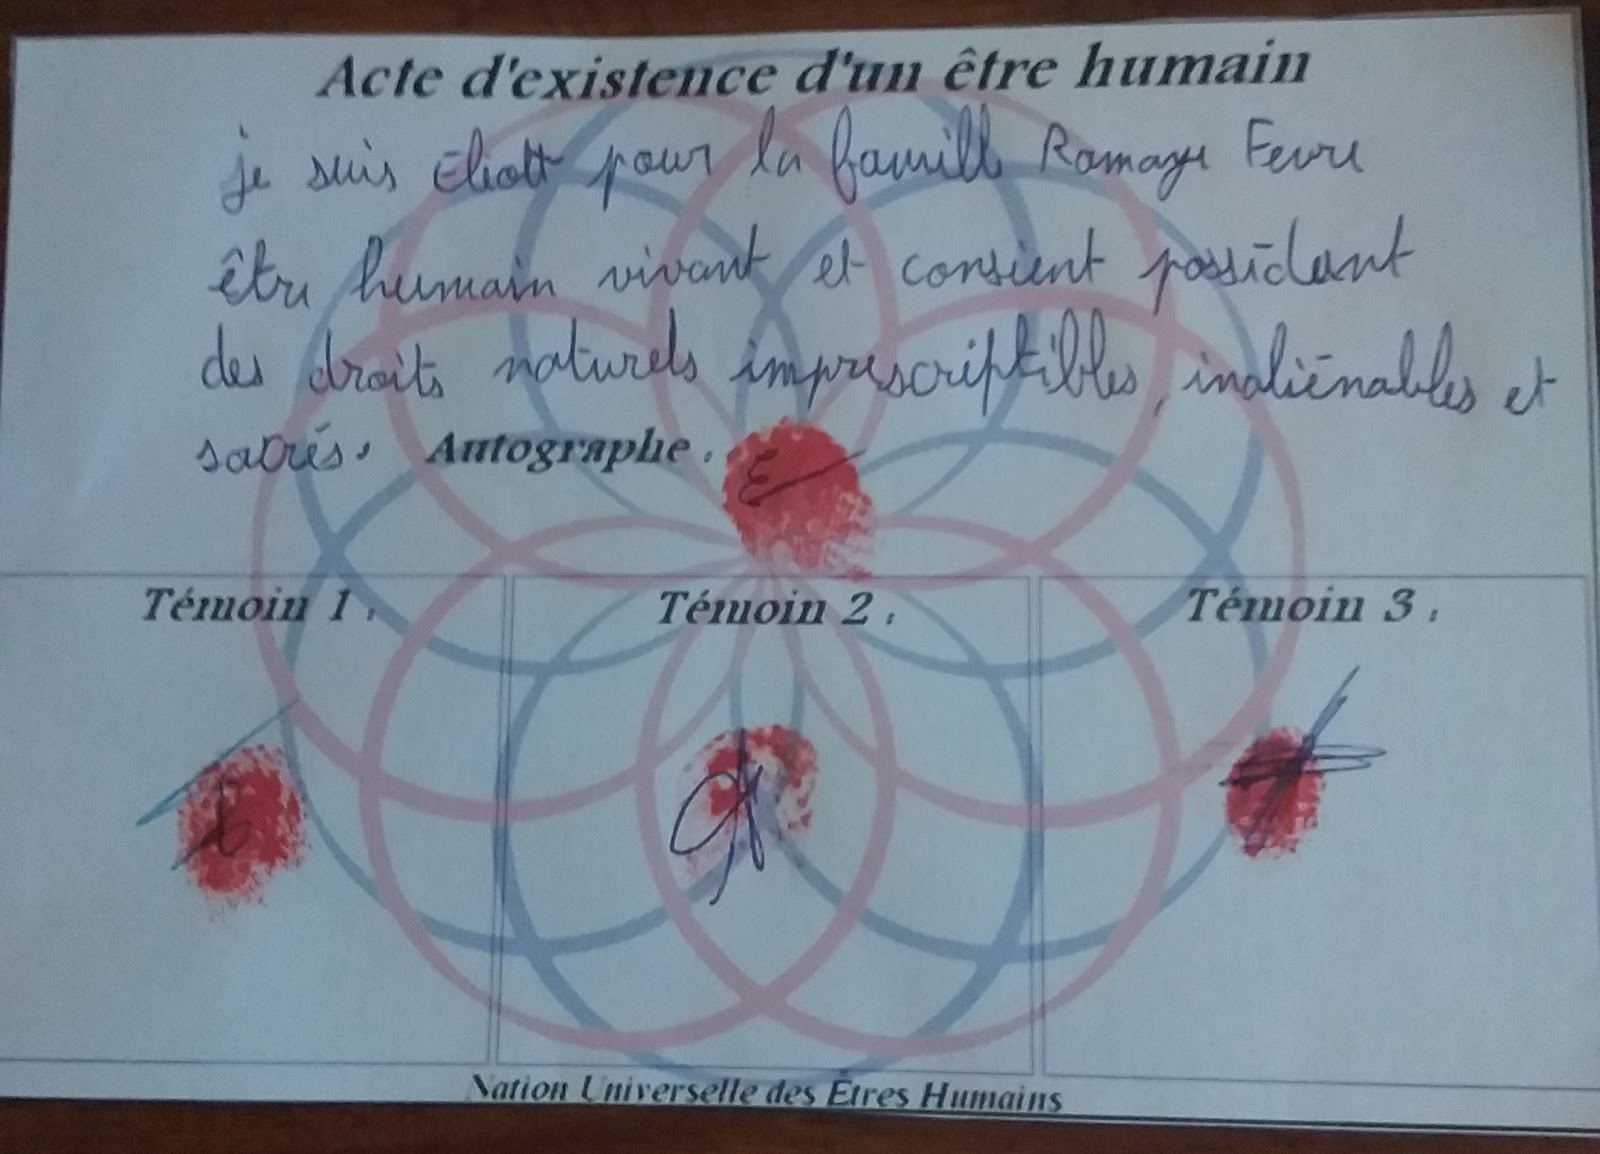 Acte d'existence d'un être humain
je suis Eliott pour la famill Ramaye Fevre
être humain vivant et consient possédant
des droits naturels imprescriptibles, inaliénables et
sacrés. Autographe :
E
Témoin 1 : Témoin 2 : Témoin 3 :
Nation Universelle des Êtres Humains